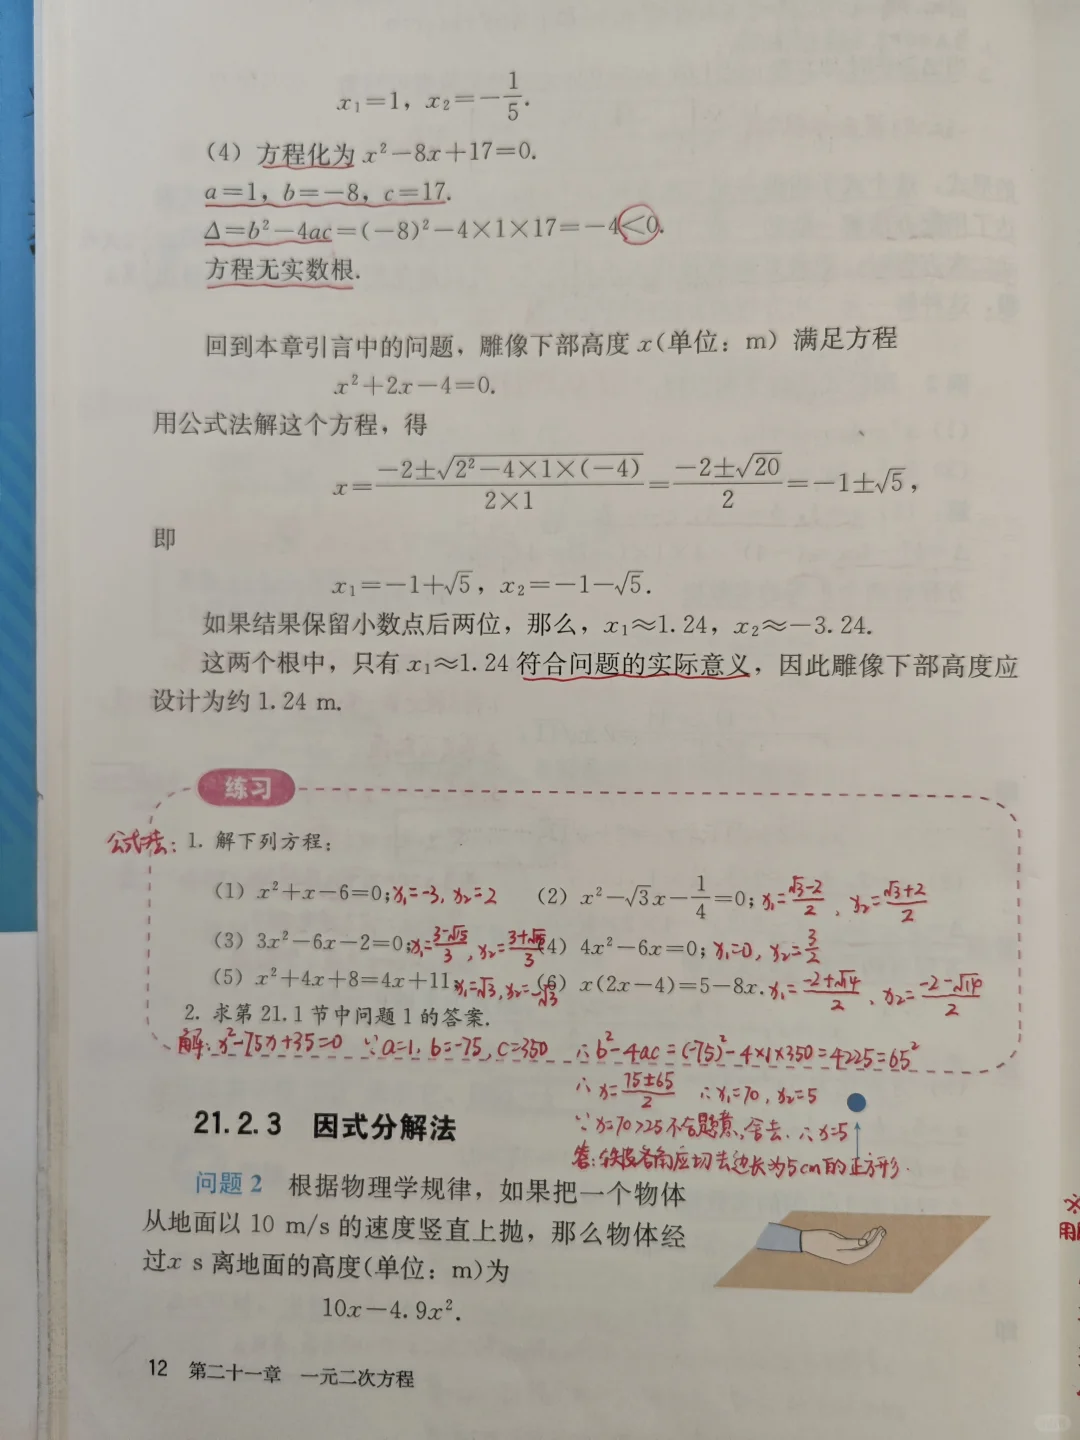 x₁=1, x₂=-1/5.
(4) 方程化为 x²-8x+17=0.
a=1, b=-8, c=17.
Δ=b²-4ac=(-8)²-4×1×17=-4<0.
方程无实数根.
回到本章引言中的问题, 雕像下部高度 x(单位: m) 满足方程
x²+2x-4=0.
用公式法解这个方程, 得
x=(-2±√(2²-4×1×(-4)))/(2×1)=(-2±√20)/2=-1±√5,
即
x₁=-1+√5, x₂=-1-√5.
如果结果保留小数点后两位, 那么, x₁≈1.24, x₂≈-3.24.
这两个根中, 只有 x₁≈1.24 符合问题的实际意义, 因此雕像下部高度应
设计为约 1.24 m.
练习
公式法: 1. 解下列方程:
(1) x²+x-6=0; x₁=-3, x₂=2 (2) x²-√3x-1/4=0; x₁=(√3-2)/2, x₂=(√3+2)/2
(3) 3x²-6x-2=0; x₁=(3-√15)/3, x₂=(3+√15)/3 (4) 4x²-6x=0; x₁=0, x₂=3/2
(5) x²+4x+8=4x+11; x₁=√3, x₂=-√3 (6) x(2x-4)=5-8x. x₁=(-2+√14)/2, x₂=(-2-√14)/2
2. 求第 21.1 节中问题 1 的答案.
解: x²-75x+35=0 ∵a=1, b=-75, c=350 ∴b²-4ac=(-75)²-4×1×350=4225=65²
∴x=(75±65)/2 ∴x₁=70, x₂=5
∵x=70>25不合题意, 舍去. ∴x=5
答: 铁皮各角应切去边长为5cm的正方形.
21.2.3 因式分解法
问题 2 根据物理学规律, 如果把一个物体
从地面以 10 m/s 的速度竖直上抛, 那么物体经
过 x s 离地面的高度(单位: m)为
10x-4.9x².
12 第二十一章 一元二次方程